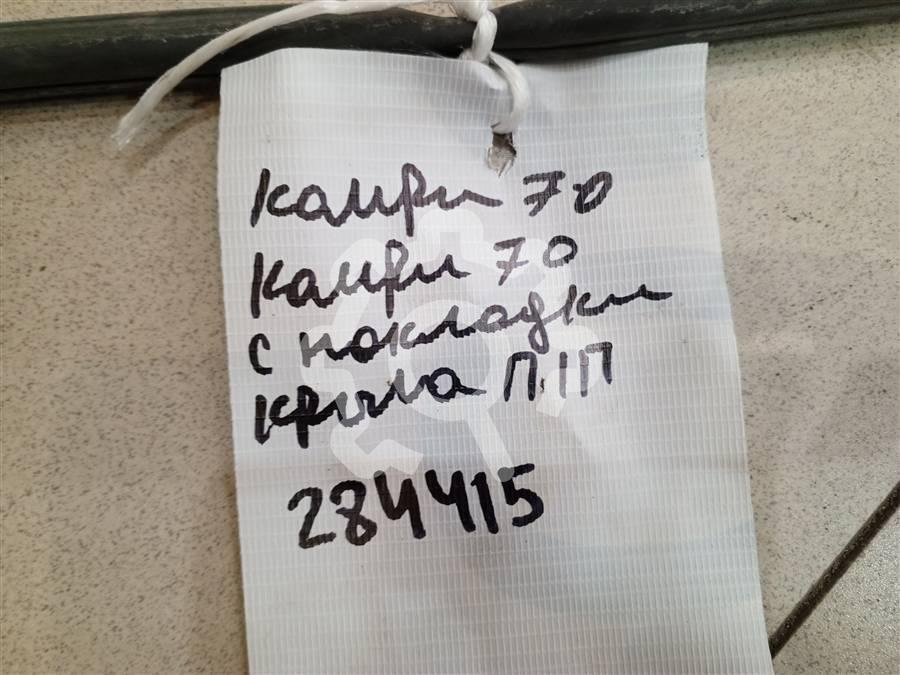 Камри 70
Камри 70
с накладки
крыла П/П
284415